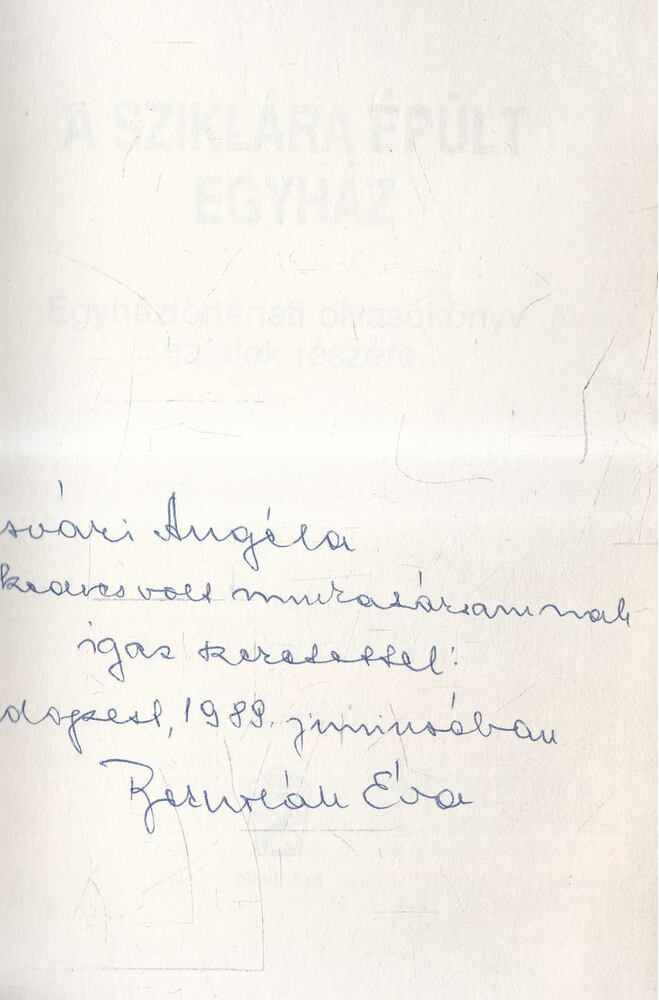 A SZIKLÁRA ÉPÜLT
EGYHÁZ
Egyháztörténeti olvasókönyv
fiatalok részére
svári Angéla
kedves volt munkatársamnak
igaz szeretettel:
dapest, 1989. júniusában
Éva